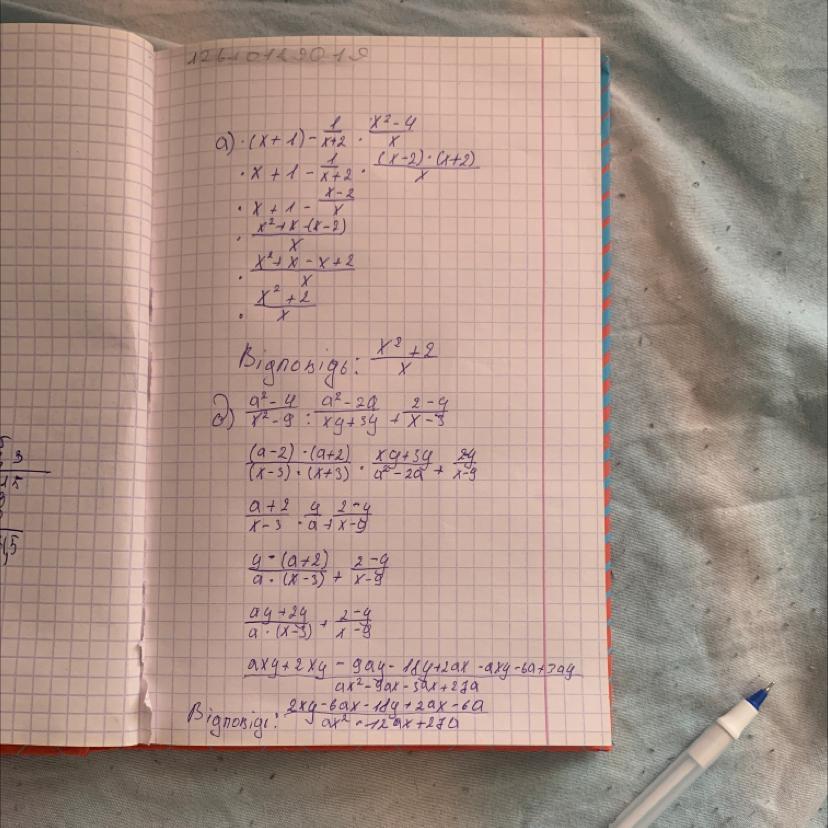 а) · (x + 1) - 1/(x+2) · (x²-4)/x
· x + 1 - 1/(x+2) · ((x-2)·(x+2))/x
· x + 1 - (x-2)/x
· (x²+x-(x-2))/x
· (x²+x-x+2)/x
· (x²+2)/x
Відповідь: (x²+2)/x
д) (a²-4)/(x²-9) : (a²-2a)/(xy+3y) + (2-y)/(x-3)
((a-2)·(a+2))/((x-3)·(x+3)) · (xy+3y)/(a²-2a) + (2-y)/(x-9)
(a+2)/(x-3) · y/a + (2-y)/(x-9)
(y·(a+2))/(a·(x-3)) + (2-y)/(x-9)
(ay+2y)/(a·(x-3)) + (2-y)/(x-9)
(axy+2xy-9ay-18y+2ax-axy-6a+3ay)/(ax²-9ax-3ax+27a)
Відповідь: (2xy-6ax-18y+2ax-6a)/(ax²-12ax+27a)